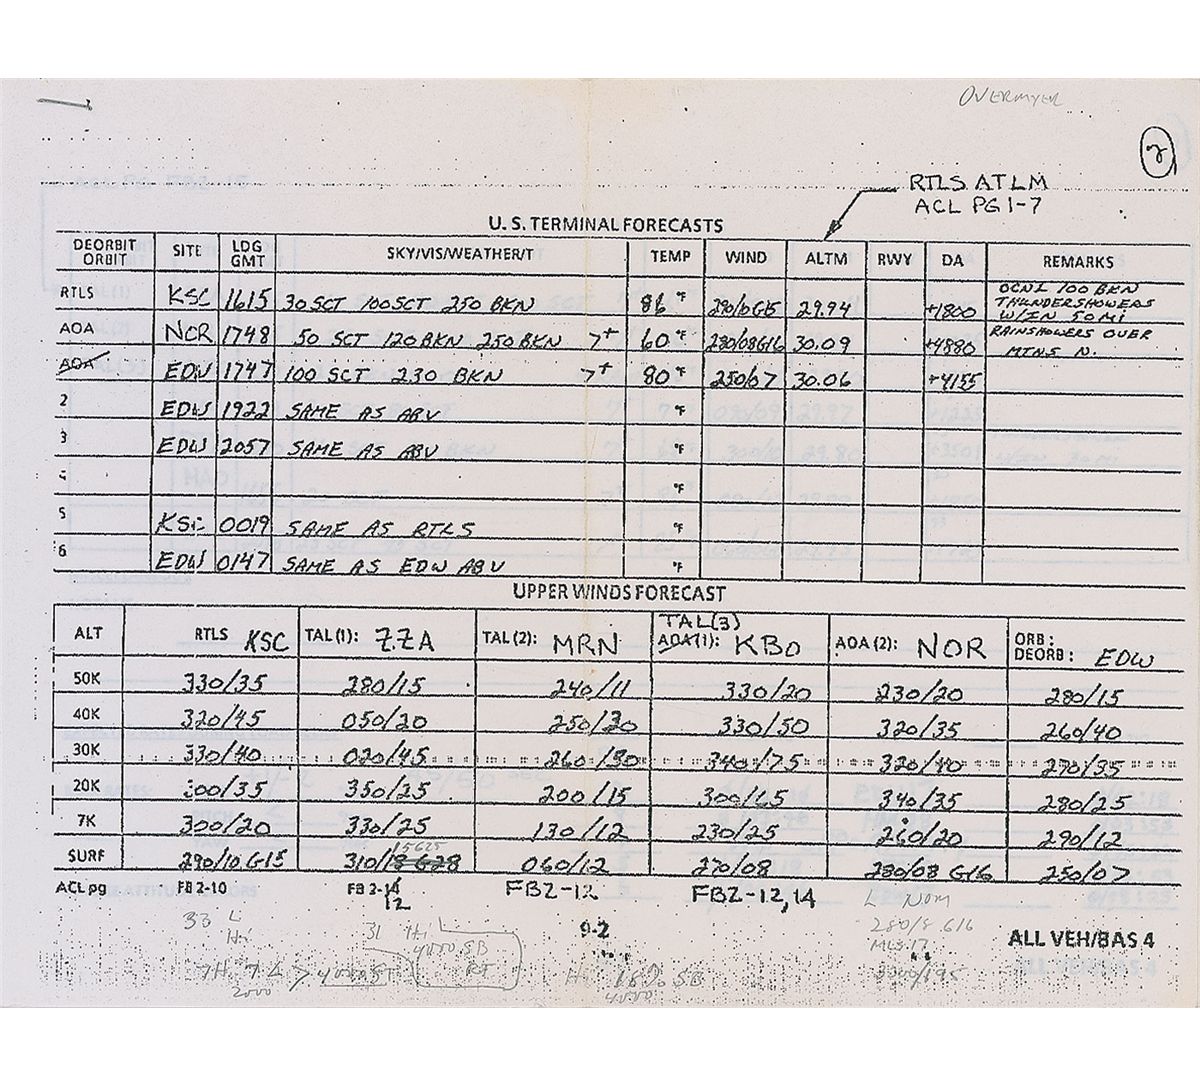 OVERMYER
2
RTLS ATLM
ACL PG 1-7
U.S. TERMINAL FORECASTS
DEORBIT ORBIT SITE LDG GMT SKY/VIS/WEATHER/T TEMP WIND ALTM RWY DA REMARKS
RTLS KSC 1615 30 SCT 100 SCT 250 BKN 86 °F 290/10G15 29.94 +1800 OCNL 100 BKN THUNDERSHOWERS W/IN 50 MI
AOA NOR 1748 50 SCT 120 BKN 250 BKN 7+ 60 °F 280/08G16 30.09 +4880 RAINSHOWERS OVER MTNS N.
AOA EDW 1747 100 SCT 230 BKN 7+ 80 °F 250/07 30.06 +4155
2 EDW 1922 SAME AS ABV °F
3 EDW 2057 SAME AS ABV °F
°F
5 KSC 0019 SAME AS RTLS °F
6 EDW 0147 SAME AS EDW ABV °F
UPPER WINDS FORECAST
ALT RTLS KSC TAL (1): ZZA TAL (2): MRN TAL(3) AOA (1): KBO AOA (2): NOR ORB: DEORB: EDW
50K 330/35 280/15 240/11 330/20 230/20 280/15
40K 320/45 050/20 250/30 330/50 320/35 260/40
30K 330/40 020/45 260/50 340/75 320/40 270/35
20K 300/35 350/25 200/15 300/65 340/35 280/25
7K 300/20 330/25 130/12 230/25 260/20 290/12
SURF 290/10 G15 310/18 G28 15G25 060/12 270/08 280/08 G16 250/07
ACL pg FB 2-10 FB 2-14 12 FB2-12 FB2-12,14
33 L Hi 31 Hi L 9-2 L NOM
4000 SB 280/8 G16
ALL VEH/BAS 4
MLS 17
RT
2000 Hi 18% SB
4000